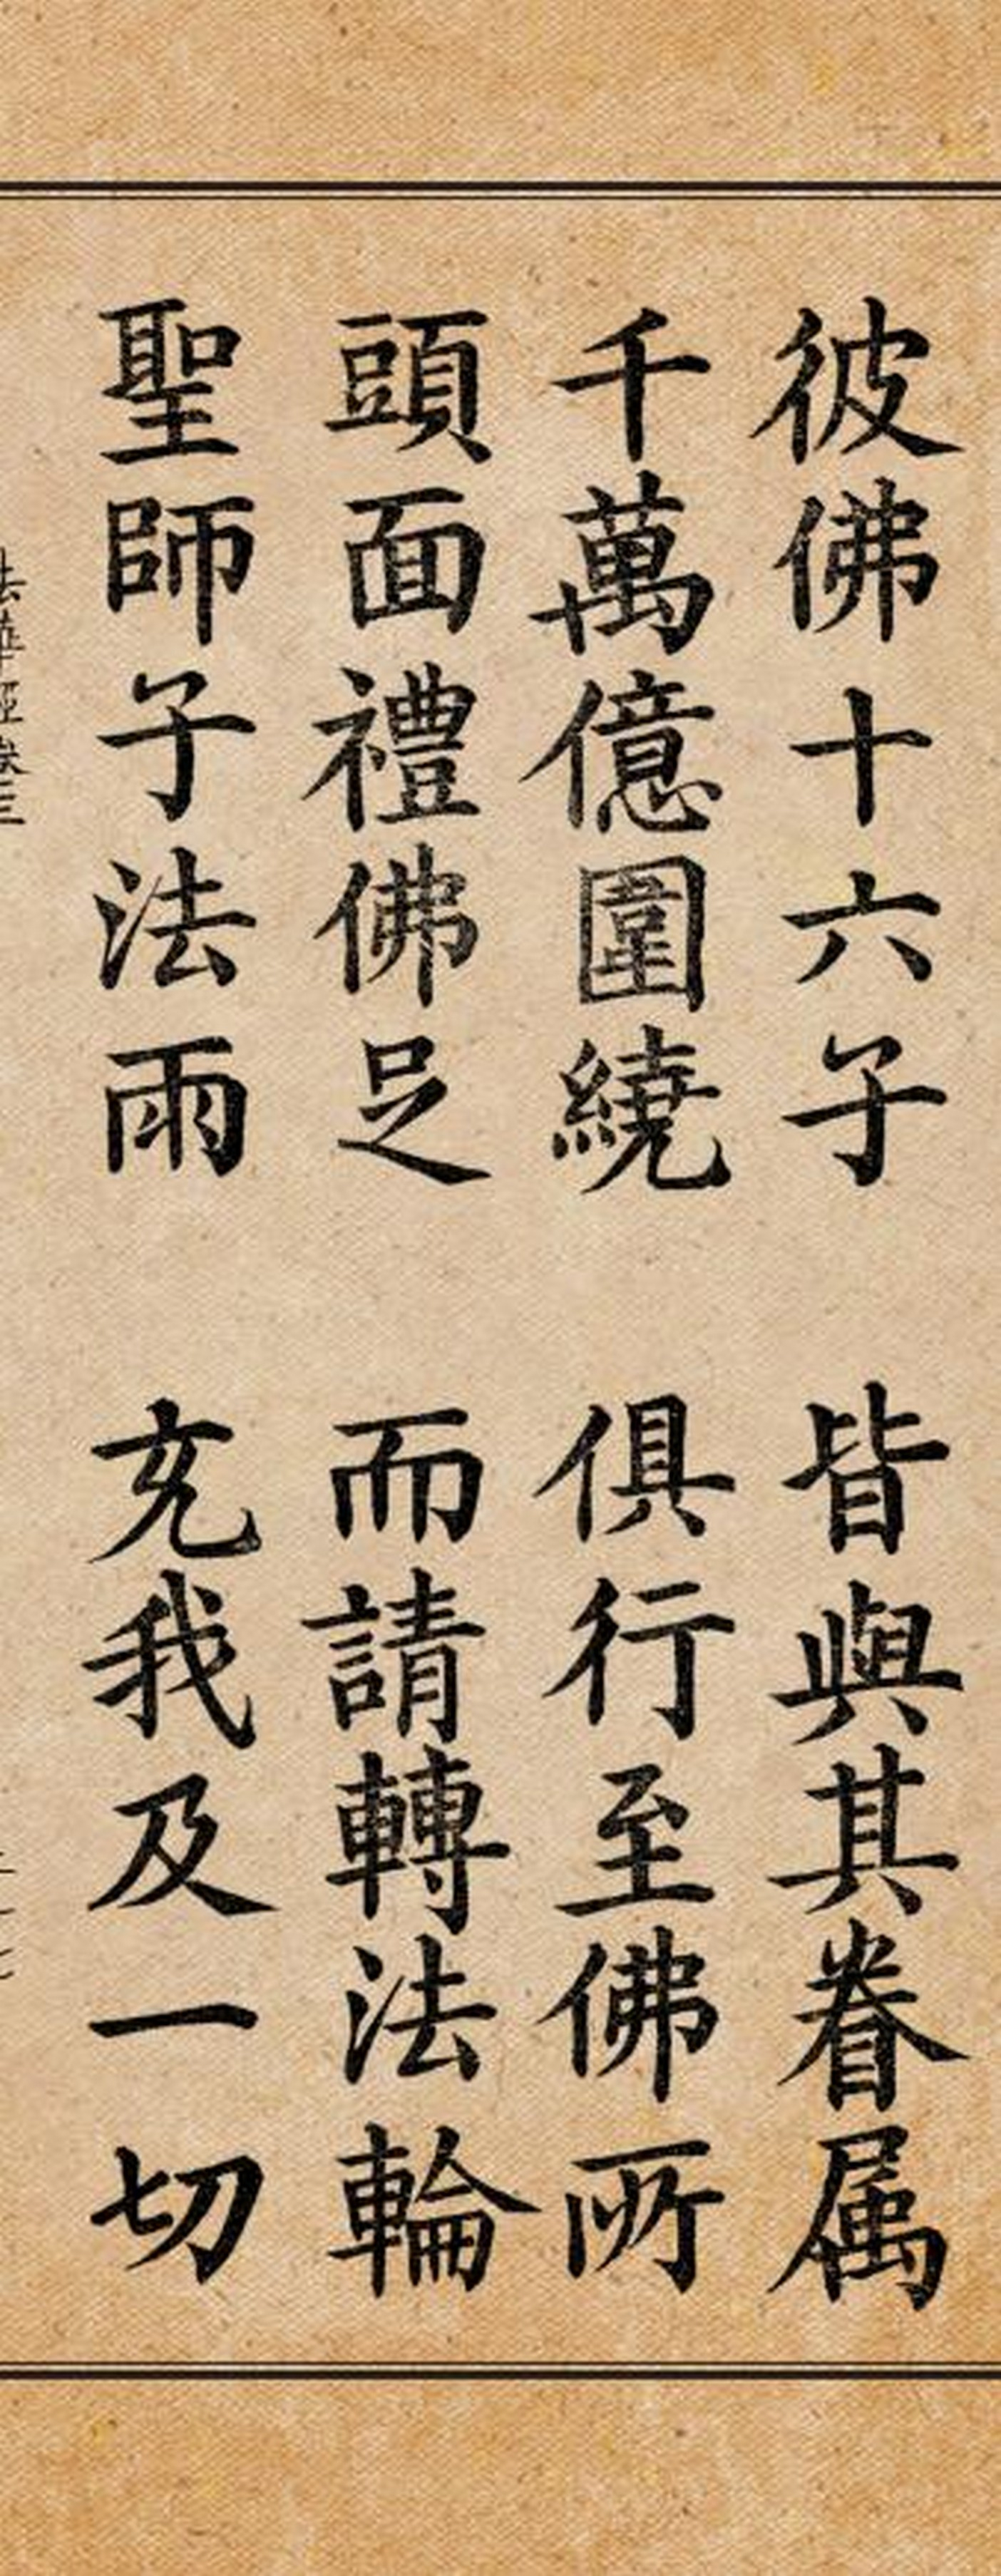 彼佛十六子 皆與其眷属
千萬億圍繞 俱行至佛所
頭面禮佛足 而請轉法輪
聖師子法雨 充我及一切
法華經卷三